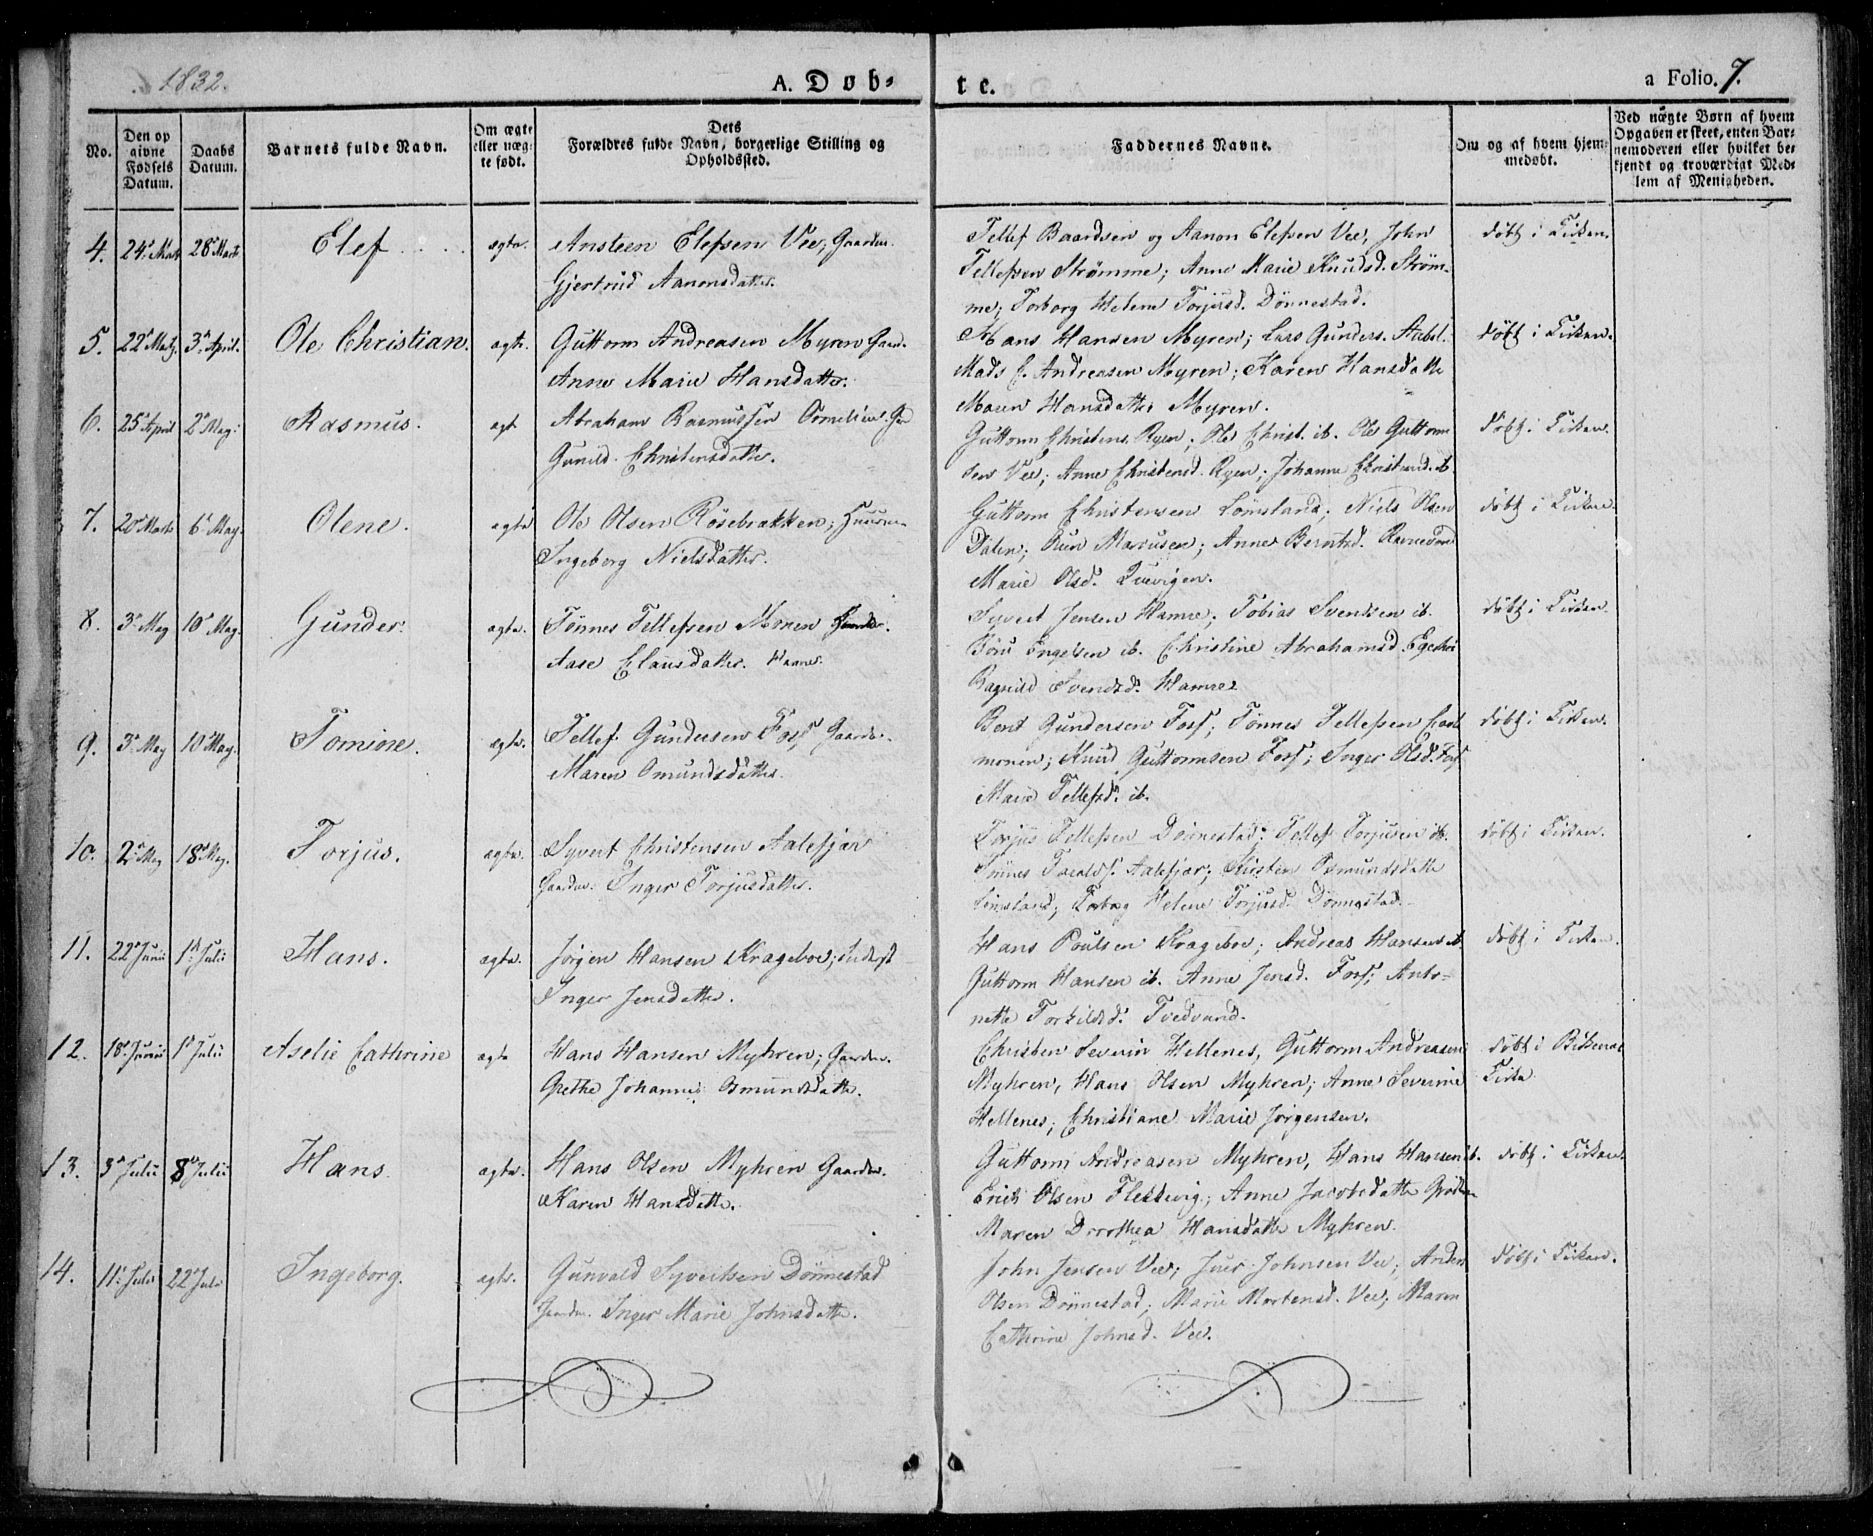 1832.
A. Døb-
te.
a Folio. 7.
No.
Den op
givne
Fødsels
Datum.
Daabs
Datum.
Barnets fulde Navn.
Om ægte
eller uæg-
te født.
Dets
Forældres fulde Navn, borgerlige Stilling og
Opholdssted.
Faddernes Navne.
Om og af hvem hjem-
medøbt.
Ved uægte Børn af hvem
Opgaven er skeet, enten Bar-
nemoderen eller hvilket be-
kjendt og troværdigt Med-
lem af Menigheden.
4. 24de Marts 28de Marts Elef ægte. Ansteen Elefsen Vee, Gaardm.
Gjertrud Aanonsdatter.
Tellef Baardsen og Aanon Elefsen Vee, John
Tellefsen Strømme; Anne Marie Knudsd. Strøm-
me; Torborg Helene Torjusd. Dönnestad.
døbt i Kirken.
5. 22de Marts 3de April. Ole Christian. ægte. Guttorm Andreasen Myren Gaardm.
Anne Marie Hansdatter.
Hans Hansen Myren; Lars Gunders.
Mads C. Andreasen Myren; Karen Hansdatte
Maren Hansdatter Myren.
døbt i Kirken.
6. 25de April 2den May. Rasmus. ægt Abraham Rasmussen
Gunild Christensdatter.
Guttorm Christens. Ryen; Ole Christ. ib. Ole Guttorm
sen Vee; Anne Christensd. Ryen; Johanne Christensd. ib.
døbt i Kirken.
7. 20de Marts 6te May. Olene. ægte Ole Olsen Rösebrakken; Huusm.
Ingeborg Nielsdatter.
Guttorm Christensen Lömsland; Niels Olsen
Dalen; Marcusen; Anne Berntsd.
Marie Olsd.
døbt i Kirken.
8. 3de May 10de May. Gunder. ægte. Tönnes Tellefsen Monen
Aase Clausdatter. Hamre.
Syvert Jensen Hamre; Tobias Svendsen ib.
Engelsen ib. Christine Abrahamsd.
Ragnild Svendsd. Hamre
døbt i Kirken.
9. 3de May 10de May. Tomine. ægte. Tellef Gundersen Foss Gaardm.
Maren Omundsdatter.
Bent Gundersen Foss; Tönnes Tellefsen
monen; Knud Guttormsen Foss; Inger Olsd. Foss
Marie Tellefsd. ib.
døbt i Kirken.
10. 2den May 18de May. Torjus. ægte. Syvert Christensen Aalefjær
Gaardm. Inger Torjusdatter.
Torjus Tellefsen Dönnestad; Tellef Torjusen ib.
Tönnes Aalefjær; Kirsten Osmundsdatte
Torborg Helene Torjusd. Dönnestad.
døbt i Kirken.
11. 22de Junii 1ste Julii Hans. ægte. Jörgen Hansen Krageboe; Inderst
Inger Jensdatter.
Hans Poulsen Krageboe; Andreas Hansen ib.
Guttorm Hansen ib. Anne Jensd. Foss; Anto-
nette Torkildsd. Tvedvand.
døbt i Kirken.
12. 18de Junii 1ste Julii Aselie Cathrine ægte Hans Hansen Myhren; Gaardm.
Grethe Johanne Osmundsdatte.
Christen Severin Hellenes, Guttorm Andreasen
Myhren, Hans Olsen Myhren; Anne Severine
Hellenes; Christiane Marie Jörgensen.
døbt i Birkenæs
Kirke
13. 3de Julii 8de Julii Hans. ægte. Hans Olsen Myhren Gaardm.
Karen Hansdatte.
Guttorm Andreasen Myhren, Hans Hansen ib.
Erich Olsen Flestvig; Anne Jacobsdatte
Maren Dorothea Hansdatte Myhren.
døbt i Kirken.
14. 11te Julii 22de Juli Ingeborg. ægte. Gunvald Syvertsen Dönnestad
Gaardm. Inger Marie Johnsdatte.
John Jensen Vee; Johnsen Vee; Anders
Olsen Dönnestad; Marie Mortensd. Vee; Maren
Cathrine Johnsd. Vee.
døbt i Kirken.